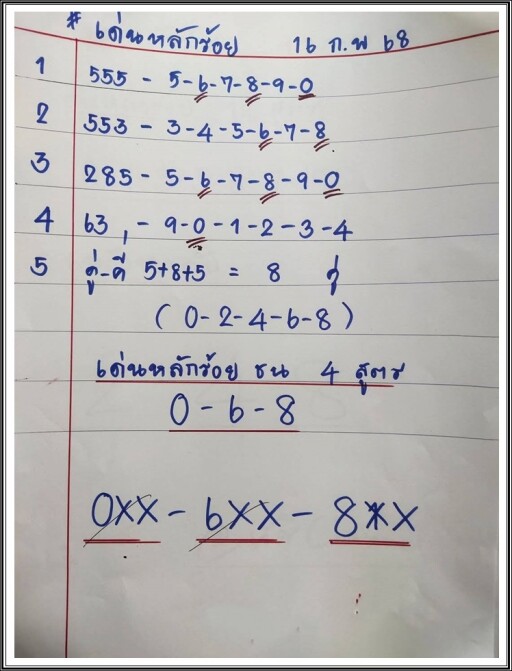 # เด่นหลักร้อย 16 ก.พ 68
1 555 - 5-6-7-8-9-0
2 553 - 3-4-5-6-7-8
3 285 - 5-6-7-8-9-0
4 63 - 9-0-1-2-3-4
5 คู่-คี่ 5+8+5 = 8 คู่
(0-2-4-6-8)
เด่นหลักร้อย ชน 4 สูตร
0-6-8
0xx - 6xx - 8xx